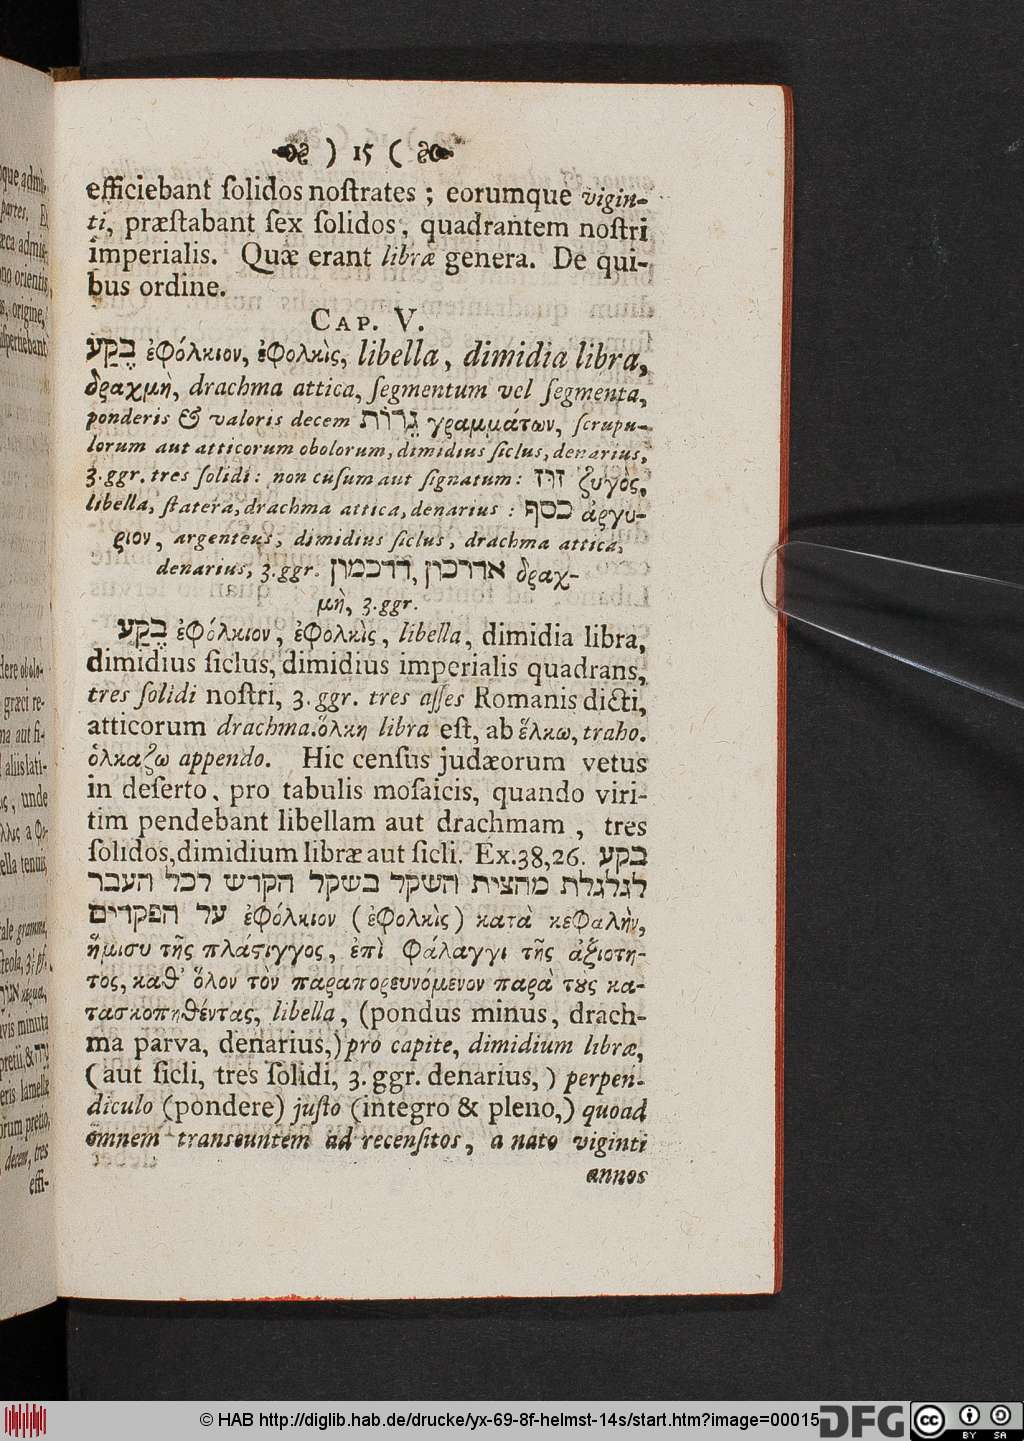 ) 15 (
efficiebant ſolidos noſtrates ; eorumque vigin-
ti, præſtabant ſex ſolidos, quadrantem noſtri
imperialis. Quæ erant libræ genera. De qui-
bus ordine.
CAP. V.
בֶּקַע ἐφόλκιον, ἐφολκὶς, libella, dimidia libra,
δραχμὴ, drachma attica, ſegmentum vel ſegmenta,
ponderis & valoris decem גֵּרוֹת γραμμάτων, ſcrupu-
lorum aut atticorum obolorum, dimidius ſiclus, denarius,
3. ggr. tres ſolidi: non cuſum aut ſignatum: זוּז ζυγὸς,
libella, ſtatera, drachma attica, denarius : כסף ἀργυ-
ριον, argenteus, dimidius ſiclus, drachma attica,
denarius, 3. ggr. דרכמון, אדרכון δραχ-
μὴ, 3. ggr.
בֶּקַע ἐφόλκιον, ἐφολκὶς, libella, dimidia libra,
dimidius ſiclus, dimidius imperialis quadrans,
tres ſolidi noſtri, 3. ggr. tres aſſes Romanis dicti,
atticorum drachma. ὅλκη libra eſt, ab ἕλκω, traho.
ὁλκαζω appendo. Hic cenſus judæorum vetus
in deſerto, pro tabulis moſaicis, quando viri-
tim pendebant libellam aut drachmam , tres
ſolidos, dimidium libræ aut ſicli. Ex. 38, 26. בקע
לגלגלת מהצית השקל בשקל הקדש לכל העבר
על הפקדים ἐφόλκιον (ἐφολκὶς) κατὰ κεφαλὴν,
ἥμισυ τῆς πλάστιγγος, ἐπὶ φάλαγγι τῆς ἀξιοτη-
τος, καθ' ὅλον τὸν παραπορευνόμενον παρὰ τοὺς κα-
τασκοπηθέντας, libella, (pondus minus, drach-
ma parva, denarius,) pro capite, dimidium libræ,
(aut ſicli, tres ſolidi, 3. ggr. denarius, ) perpen-
diculo (pondere) juſto (integro & pleno,) quoad
omnem transeuntem ad recenſitos, a nato viginti
annos
© HAB http://diglib.hab.de/drucke/yx-69-8f-helmst-14s/start.htm?image=00015
DFG
cc BY SA